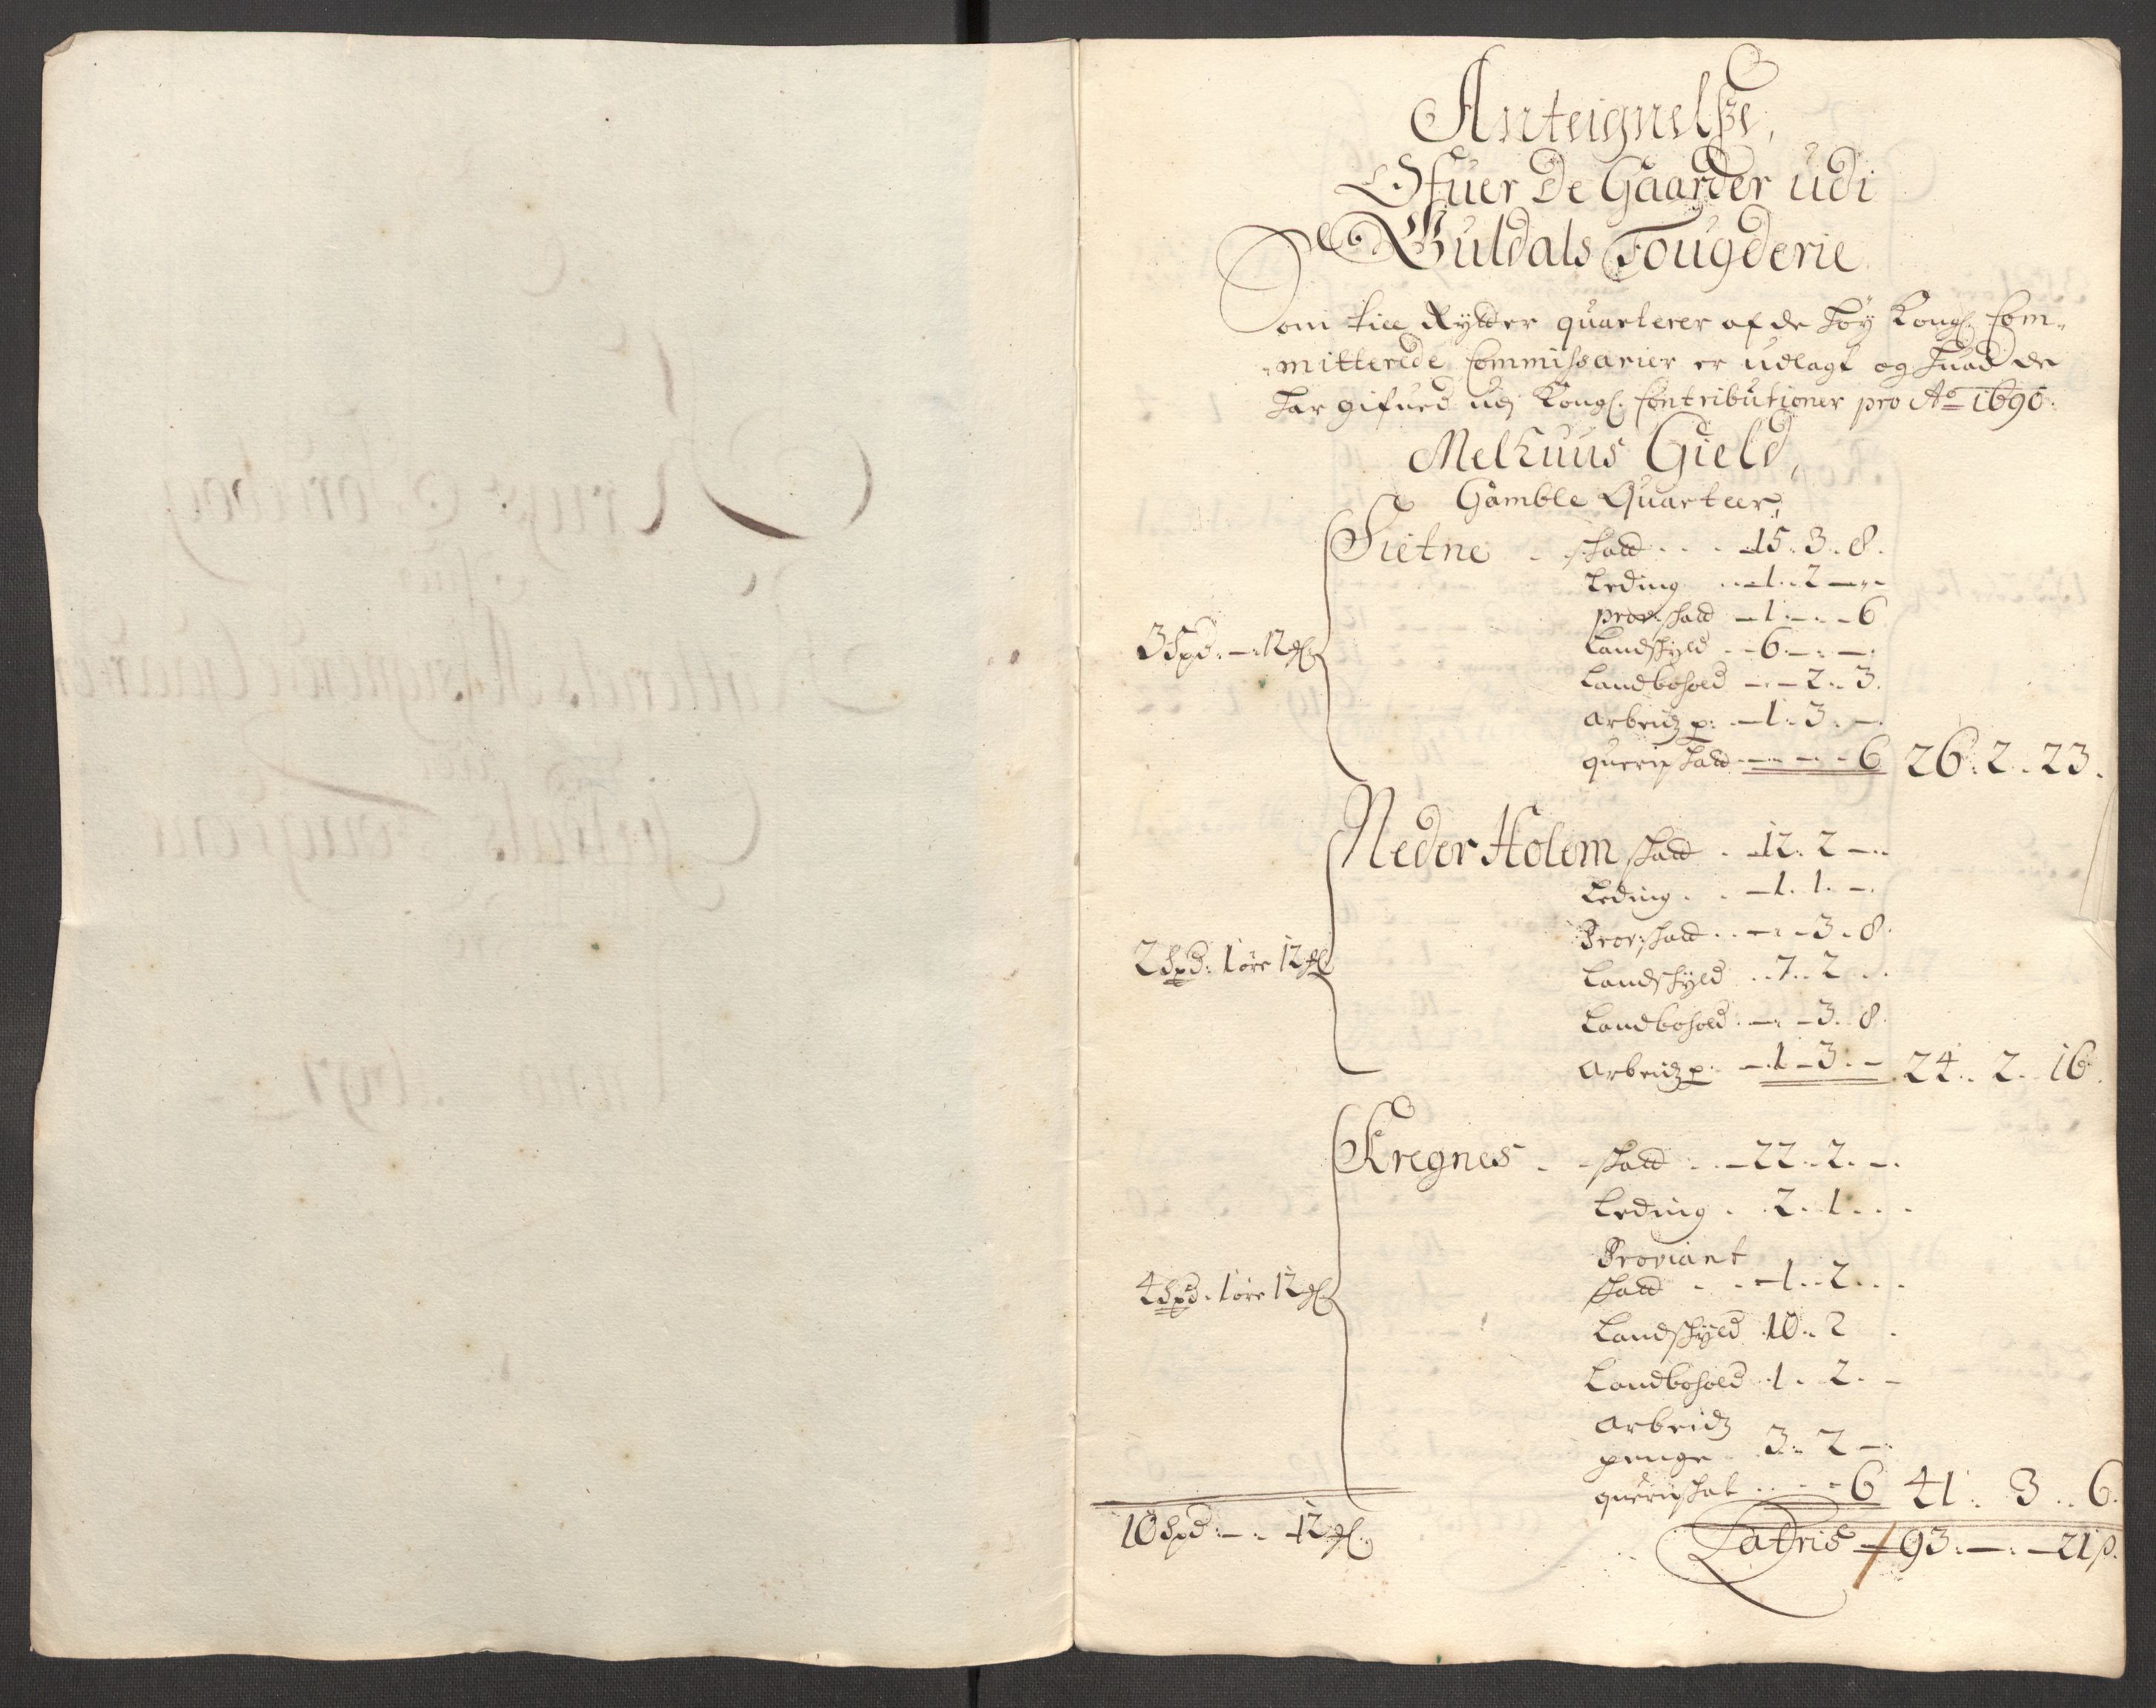 Anteignelße,
Ofuer De Gaarder udi
Guldals Fougderie
Som till Rytter quarterer af de høy Kongl: Com-
mitterede Commissarier er udlagt og huad de
har gifued udj Kongl: Contributioner pro Ao 1690.
Melhuus Gield,
Gamble Quarteer,
Sietne . skatt . . . 15. 3. 8.
Leding . . 1. 2 —
prov: skatt — 1. —. — 6
3 spd: — 12 ## Landskyld . . 6. —. —.
Landbohold — . — 2. 3.
Arbeidz p: — 1. 3. —.
quernskatt — — 6 26. 2. 23.
Neder Holem skatt . 12. 2 —
Leding . . — 1. 1. —.
Prov: skatt . . — . — 3. 8.
2 spd: 1 øre 12 Landskyld . . 7. 2 . .
Landbohold . — . — 3. 8.
Arbeidz p: — 1 — 3. — 24. 2. 16.
Kregnes . . skatt . . — 22. 2. —.
Leding . 2. 1. . .
Proviant
4 spd. 1 øre 12 skatt . . — 1. 2. . .
Landskyld 10. 2 .
Landbohold 1. 2. —
Arbeidz
penge 3. 2 —.
quernskat . . . . 6 41. 3. 6.
10 spd: — . 12 Latris — 93. —. — 21 ß.